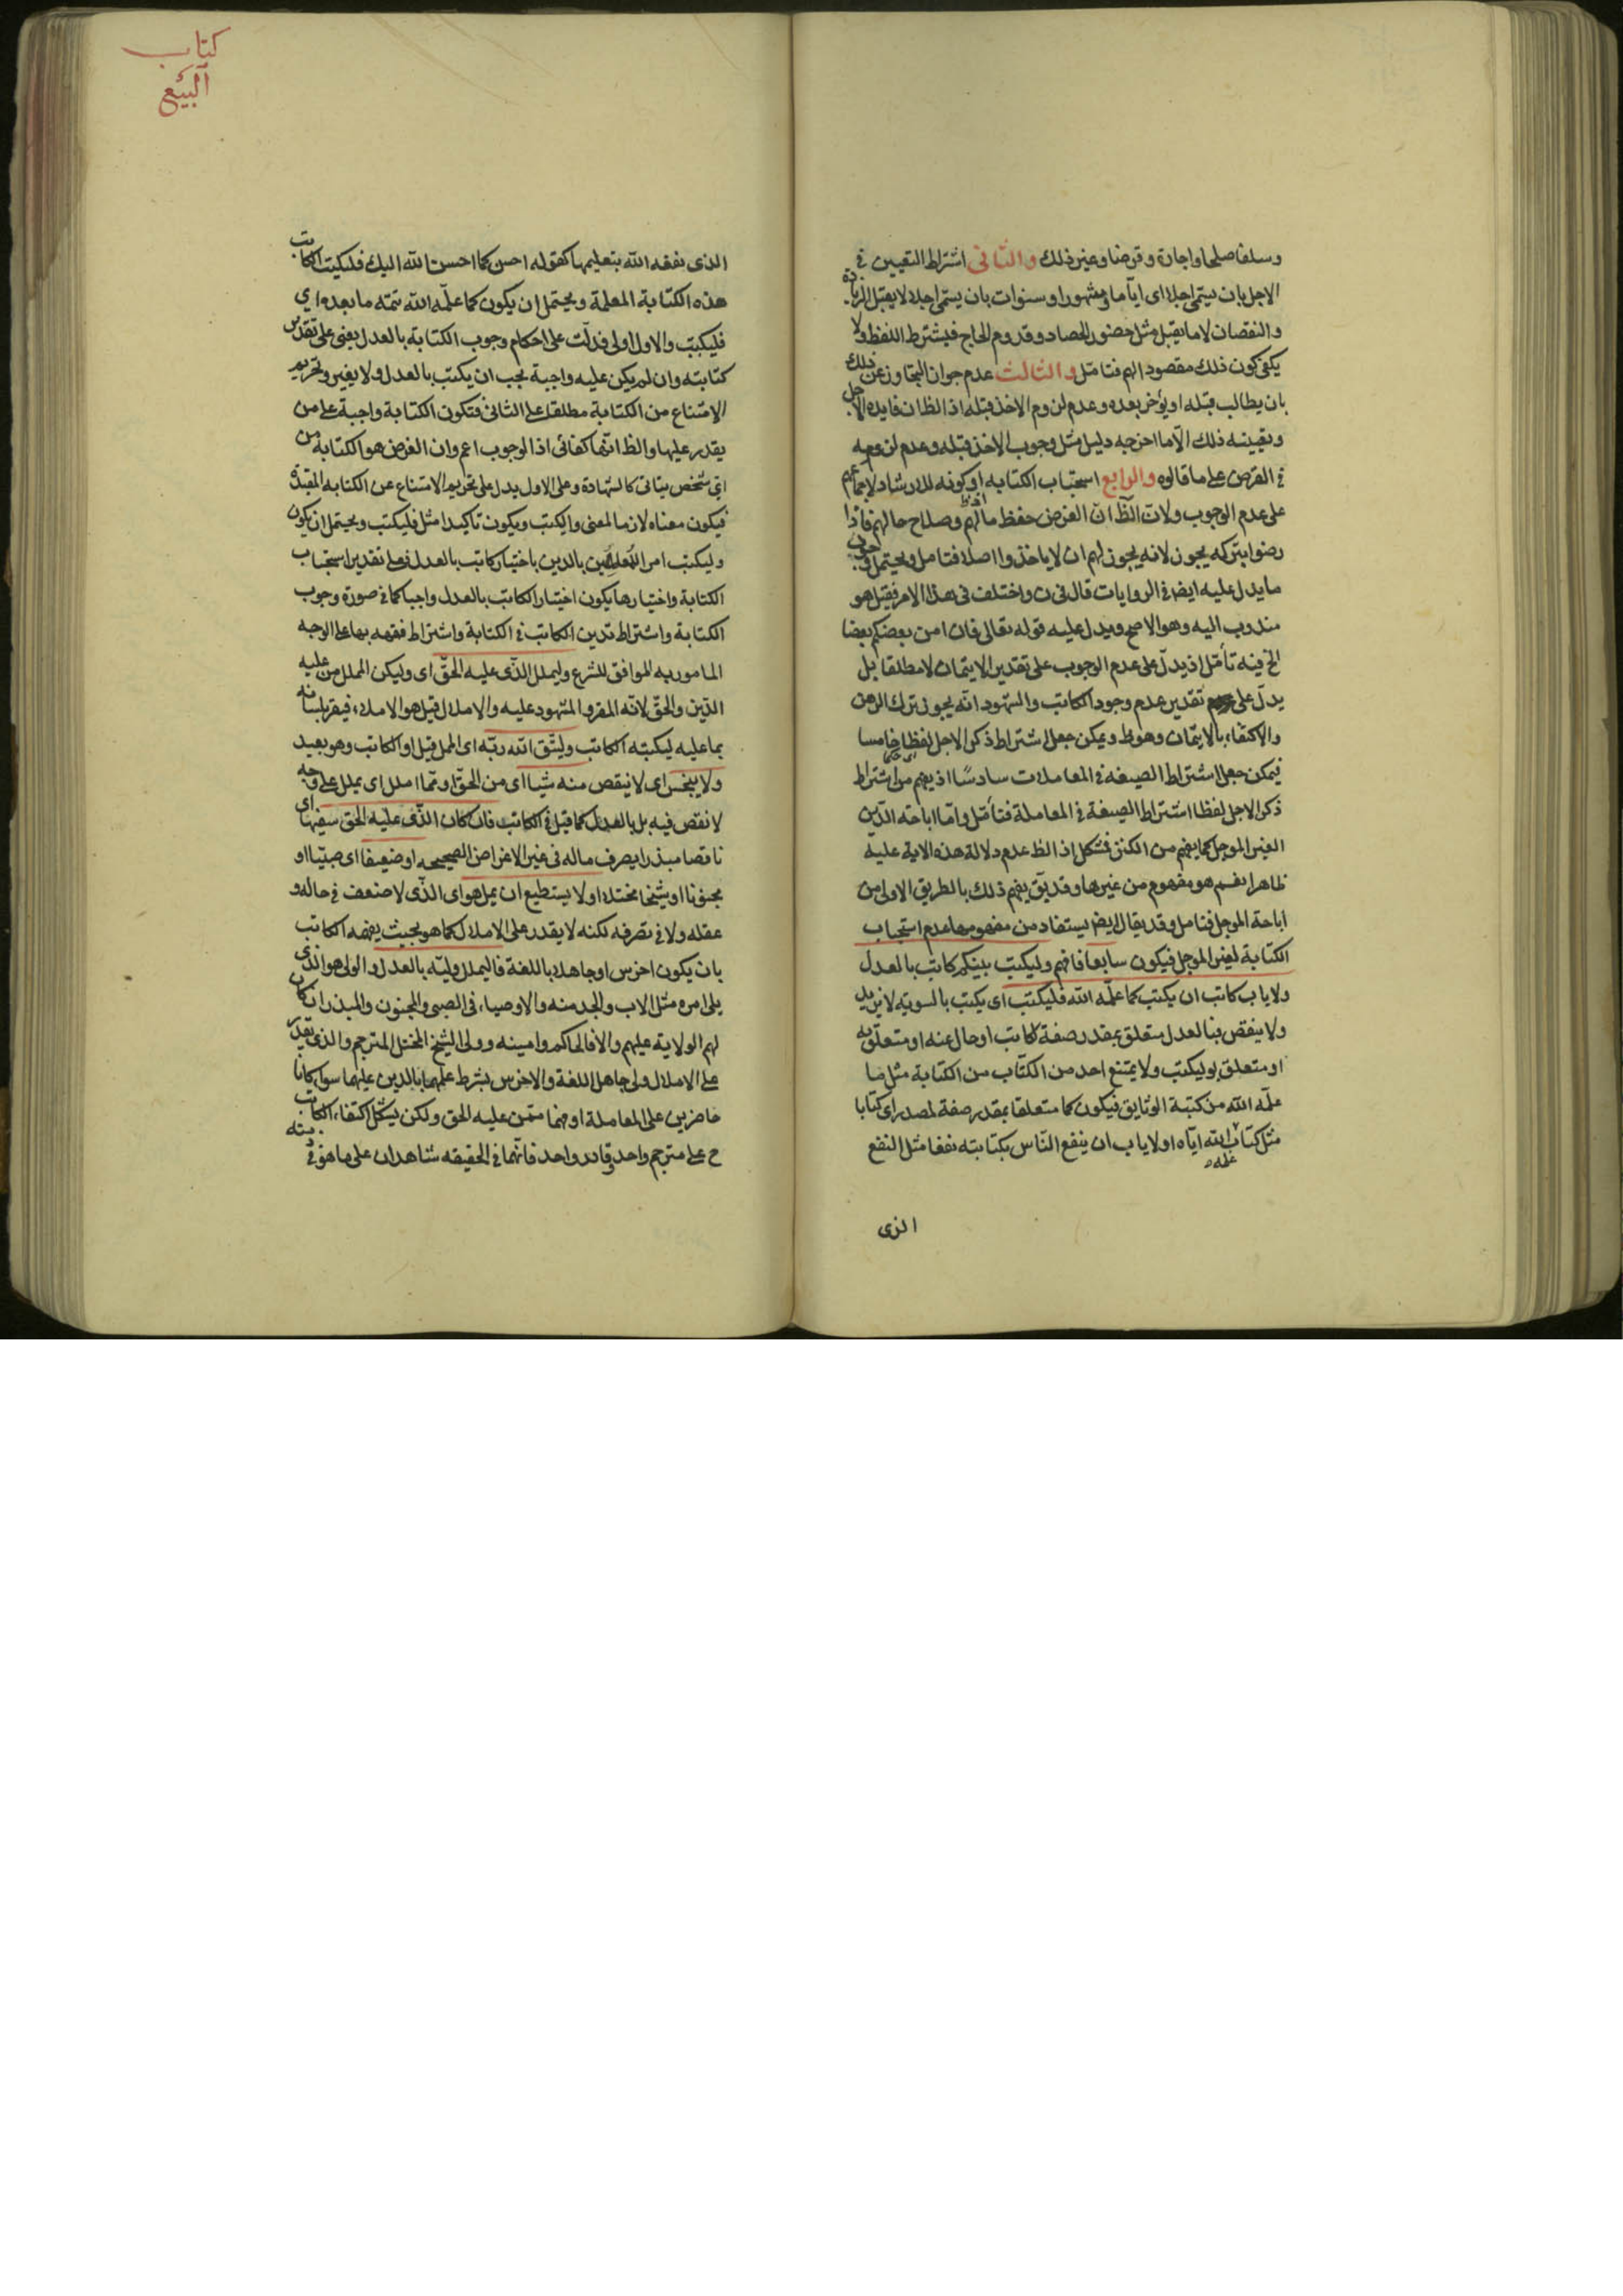 وسلفا صلحا واجارة وقرضا وغير ذلك والثانى اشتراط التعيين فى
الاجل بان يسمى اجلا اى اياما او شهورا وسنوات بان يسمى اجلا لا يقبل الزيادة
والنقصان لا ما يقبل مثل حضور الحصاد وقدوم الحاج فيشترط اللفظ ولا
يكفى كون ذلك مقصودا لهم فتامل والثالث عدم جواز التجاوز عن ذلك
بان يطالب قبله او يؤخر بعده وعدم لزوم الاخذ قبله اذ الظ ان فايدة الاجل
وتعيينه ذلك الا ما اخرجه دليل مثل وجوب الاخذ قبله وعدم لزومه
فى القرض على ما قالوه والرابع استحباب الكتابه او كونه للارشاد لاجماعهم
على عدم الوجوب ولان الظ ان الغرض حفظ مالهم وصلاح حالهم فاذا
رضوا بتركه يجوز لانه يجوز لهم ان لا ياخذوا اصلا فتامل ويحتمل
ما يدل عليه ايض فى الروايات قال فى ن واختلف فى هذا الامر فقيل هو
مندوب اليه وهو الاصح ويدل عليه قوله تعالى فان امن بعضكم بعضا
الخ فيه تأمل اذ يدل على عدم الوجوب على تقدير الايتمان لا مطلقا بل
يدل على تقدير عدم وجود الكاتب والشهود انه يجوز ترك الرهن
والاكتفاء بالايتمان وهو ظ ويمكن جعل اشتراط ذكر الاجل لفظا خامسا
فيمكن جعل اشتراط الصيغه فى المعاملات سادسا اذ يفهم من اشتراط
ذكر الاجل لفظا اشتراط الصيغة فى المعاملة فتأمل واما اباحة الدين
الغير الموجل كما يفهم من الكنز فمشكل اذ الظ عدم دلالة هذه الاية عليه
ظاهرا نعم هو مفهوم من غيرها وقد يق يفهم ذلك بالطريق الاولى من
اباحة الموجل فتامل وقد يقال ايض يستفاد من مفهومها عدم استحباب
الكتابة لغير الموجل فيكون سابعا فافهم وليكتب بينكم كاتب بالعدل
ولا ياب كاتب ان يكتب كما علمه الله فليكتب اى يكتب بالسويه لا يزيد
ولا ينقص فبالعدل متعلق بمقدر صفة كاتب او حال عنه او متعلق به
او متعلق بوليكتب ولا يمتنع احد من الكتاب من الكتابة مثل ما
علمه الله من كتبة الوثايق فيكون كما متعلقا بمقدر صفة لمصدر اى كتابا
مثل كتاب علمه الله اياه او لا ياب ان ينفع الناس بكتابته نفعا مثل النفع
الذى
كتاب
البيع
الذى نفعه الله بتعليمها كقوله احسن كما احسن الله اليك فليكتب الكاتب
هذه الكتابة المعلمة ويحتمل ان يكون كما علمه الله تتمه ما بعده اى
فليكتب والاول اولى فدلت على احكام وجوب الكتابة بالعدل يعنى على تقدير
كتابته وان لم يكن عليه واجبة يجب ان يكتب بالعدل ولا يغير وتحريم
الامتناع من الكتابة مطلقا على الثانى فتكون الكتابة واجبة على من
يقدر عليها والظ انها كفائى اذ الوجوب اعم وان الغرض هو الكتابة من
اى شخص يتاتى كالشهادة وعلى الاول يدل على تحريم الامتناع عن الكتابه المقيدة
فيكون معناه لازما لمعنى وليكتب ويكون تاكيدا مثل فليكتب ويحتمل ان يكون
وليكتب امرا للمتعاملين بالدين باختيار كاتب بالعدل فعلى تقدير استحباب
الكتابة واختيارها يكون اختيار الكاتب بالعدل واجبا كما فى صورة وجوب
الكتابة واشتراط تدين الكاتب فى الكتابة واشتراط فقهه بها على الوجه
المامور به الموافق للشرع وليملل الذى عليه الحق اى وليكن المملل من عليه
الدين والحق لانه المقر والمشهود عليه والاملال قيل هو الاملاء فيقر بلسانه
بما عليه ليكتبه الكاتب وليتق الله ربه اى الممل قيل او الكاتب وهو بعيد
ولا يبخس اى لا ينقص منه شيئا اى من الحق او مما املل اى يملل على وجه
لا نقص فيه بل بالعدل كما قيل فى الكاتب فان كان الذى عليه الحق سفيها اى
ناقصا مبذرا يصرف ماله فى غير الاغراض الصحيحه او ضعيفا اى صبيا او
مجنونا او شيخا مختلا او لا يستطيع ان يمل هو اى الذى لا ضعف فى حاله و
عقله ولا فى تصرفه لكنه لا يقدر على الاملال كما هو بحيث يفهمه الكاتب
بان يكون اخرس او جاهلا باللغة فاليملل وليه بالعدل والولى هو الذى
يلى امره مثل الاب والجد منه والاوصياء فى الصبى والمجنون والمبذر ان كان
لهم الولاية عليهم والا فالحاكم وامينه وولى الشيخ المختل المترجم والذى يقدر
على الاملال ولى جاهل اللغة والاخرس بشرط علمهما بالدين عليهما سواء كانا
حاضرين على المعاملة او فهما ممن عليه الحق ولكن يشكل اكتفاء الكاتب
ح على مترجم واحد وقادر واحد فانهما فى الحقيقه شاهدان على ما هو فى